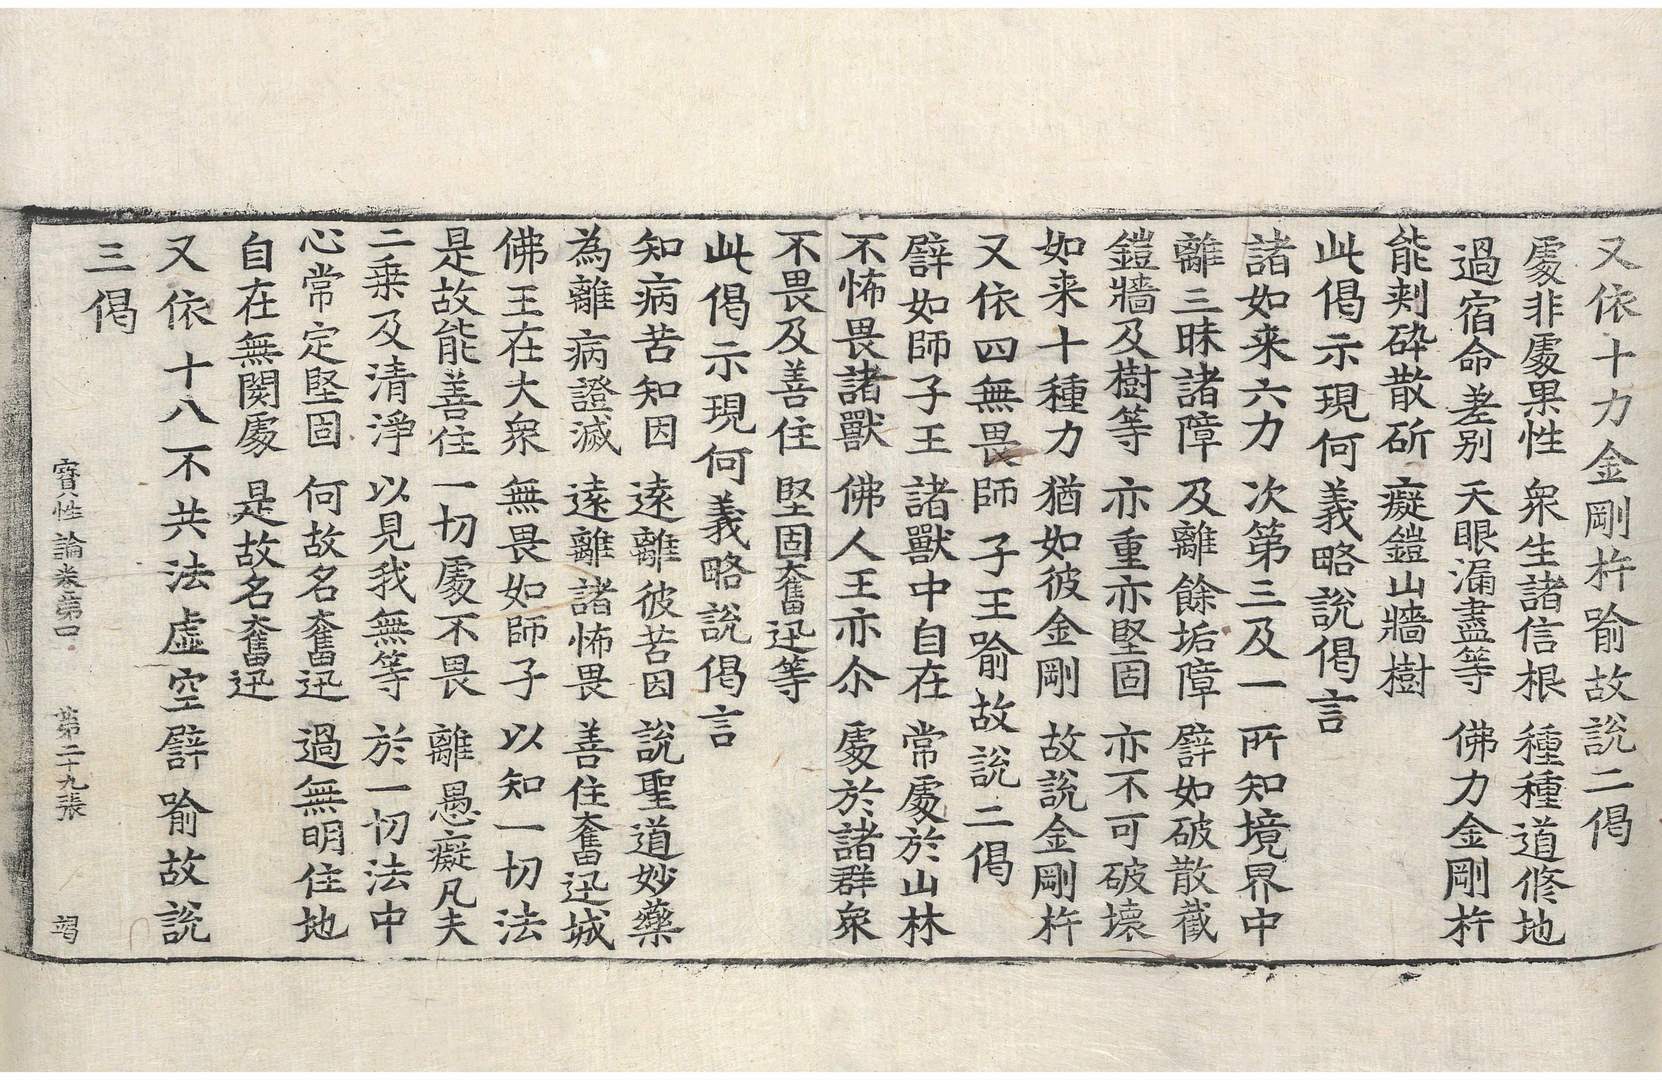 又依十力金剛杵喻故說二偈
處非處果性　衆生諸信根　種種道修地
過宿命差别　天眼漏盡等　佛力金剛杵
能刾碎散斫　癡鎧山牆樹
此偈示現何義略說偈言
諸如来六力　次第三及一　所知境界中
離三昧諸障　及離餘垢障　譬如破散截
鎧牆及樹等　亦重亦堅固　亦不可破壞
如来十種力　猶如彼金剛　故說金剛杵
又依四無畏師子王喻故說二偈
譬如師子王　諸獸中自在　常處於山林
不怖畏諸獸　佛人王亦尒　處於諸群衆
不畏及善住　堅固奮迅等
此偈示現何義略說偈言
知病苦知因　遠離彼苦因　說聖道妙藥
為離病證滅　遠離諸怖畏　善住奮迅城
佛王在大衆　無畏如師子　以知一切法
是故能善住　一切處不畏　離愚癡凡夫
二乗及清淨　以見我無等　於一切法中
心常定堅固　何故名奮迅　過無明住地
自在無閡處　是故名奮迅
又依十八不共法虛空譬喻故說
三偈
寶性論卷第四　第二十九張　竭